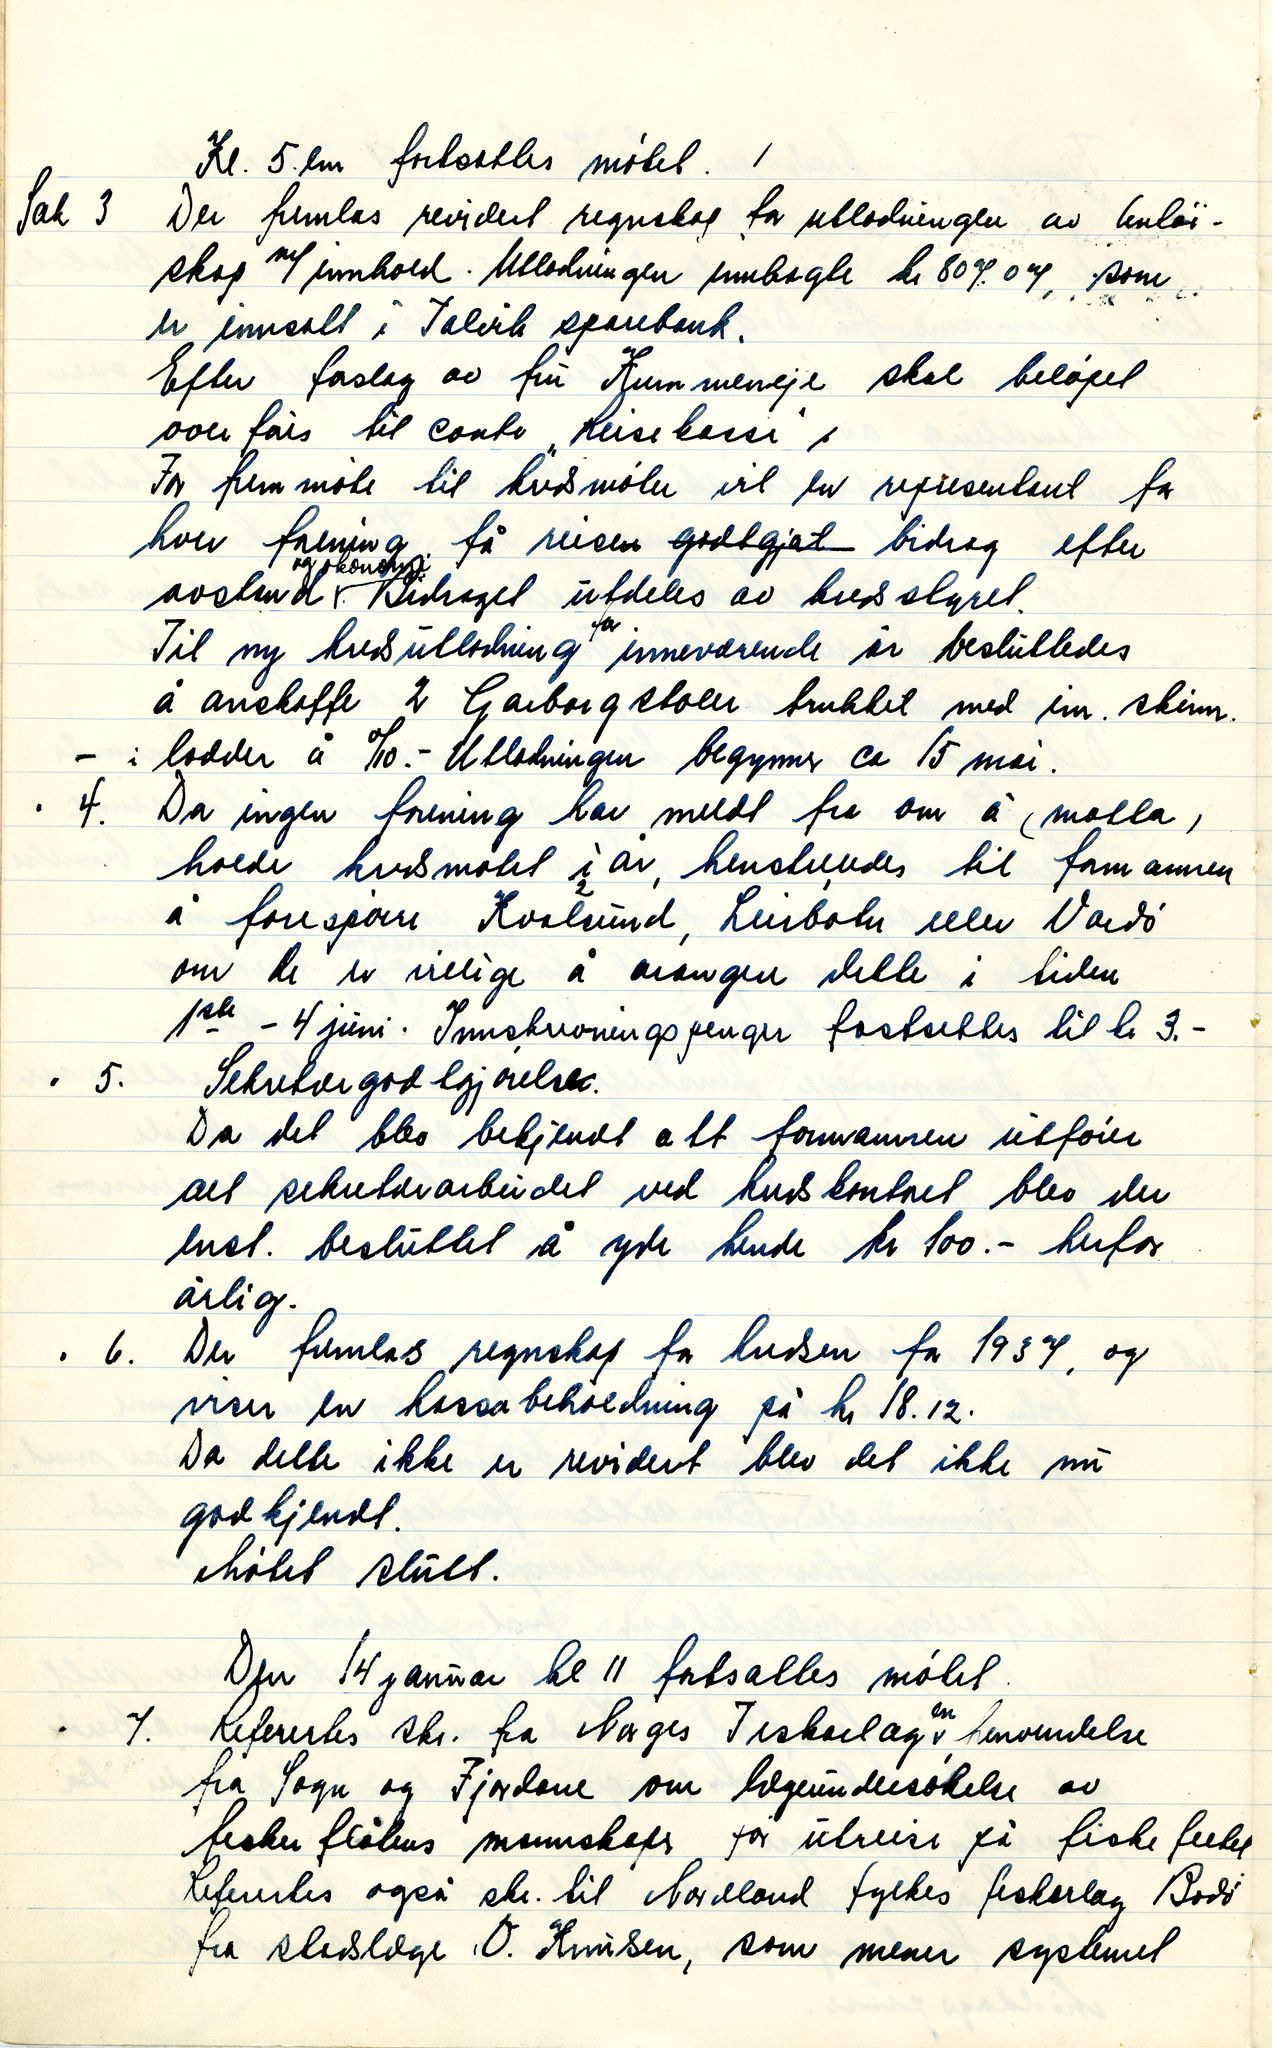 Kl. 5. em fortsattes møtet.
Sak 3 Der fremlas revidert regnskap for utlodningen av lintöi-
skap m/ innhold. Utlodningen innbragte kr 807.07, som
er innsatt i Talvik sparebank.
Efter forslag av fru Kummeneje skal beløpet
overføres til conto "Reisekasse".
For fremmøte til kredsmøter vil en representant for
hver forening få reisen godtgjat bidrag efter
avstand og økonomi. Bidraget utdeles av kredsstyret.
Til ny kredsutlodning for inneværende år besluttedes
å anskaffe 2 Garborgstoler trukket med im. skinn.
- i lodder á 0/10.- Utlodningen begynner ca 15 mai.
" 4. Da ingen forening har meldt fra om å (motta)
holde kredsmøtet i år, henstilledes til formannen
å forespørre Kvalsund, Leirbotn eller Vardö
om de er villige å arangere dette i tiden
1ste - 4 juni. Innskrivningspenger fastsettes til kr 3.-
" 5. Sekretærgodtgjørelse.
Da det blev bekjendt att formannen utfører
alt sekretærarbeidet ved kredskontoret blev der
enst. besluttet å yde hende kr 100.- herfor
årlig.
" 6. Der fremlas regnskap for kredsen for 1937, og
viser en kassabeholdning på kr 18.12.
Da dette ikke er revidert blev det ikke nu
godkjendt.
Møtet slutt.
Den 14 januar kl 11 fortsattes møtet.
" 7. Refererts skr. fra Norges Fiskarlag en henvendelse
fra Sogn og Fjordane om lægeundersøkelse av
fiskerflåtens mannskaper før utreise på fiskefeltet
Refererts også skr. til Nordland fylkes fiskarlag Bodö
fra stadslæge O. Knudsen, som mener systemet